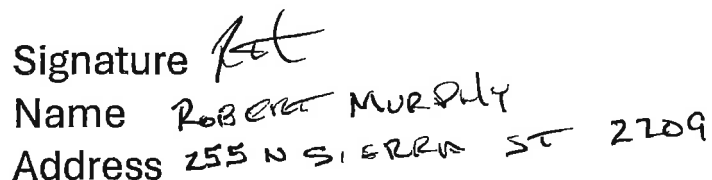 Signature
Name ROBERT MURPHY
Address 255 N SIERRA ST 2209